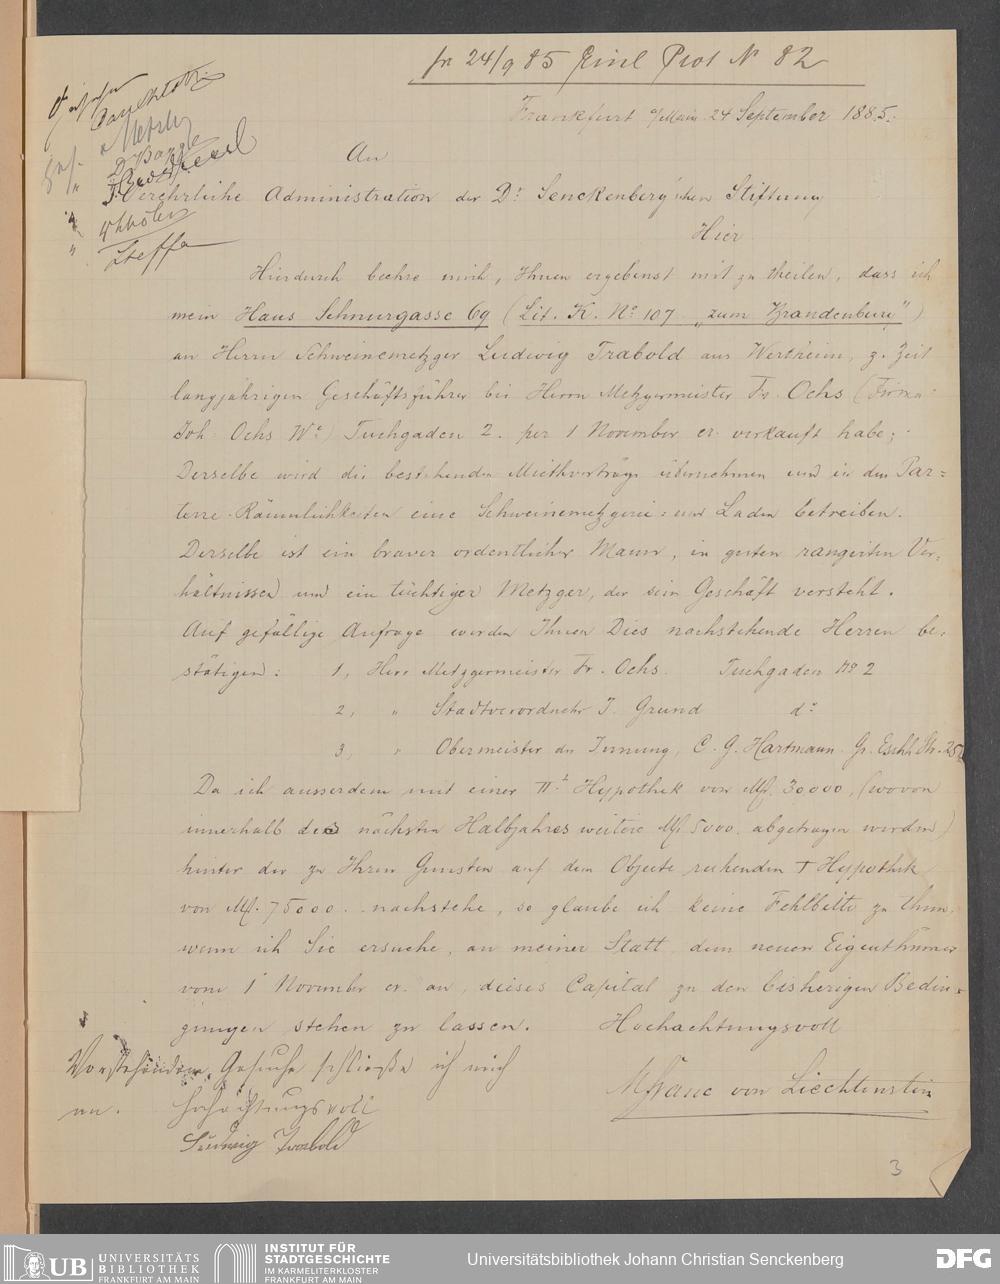 pr 24/9 85 Einl Prot № 82
Frankfurt a/Main 24 September 1885.
Gesehen
Metzler
Steffan
An
Verehrliche Administration der Dr Senckenberg'schen Stiftung
Hier
Hierdurch beehre mich, Ihnen ergebenst mit zu theilen, dass ich
mein Haus Schnurgasse 69 (Lit. K. No 107 „zum Brandenburg")
an Herrn Schweinemetzger Ludwig Trabold aus Wertheim, z. Zeit
langjährigen Geschäftsführer bei Herrn Metzgermeister Fr. Ochs (Firma
Joh. Ochs We) Tuchgaden 2. per 1 November cr. verkauft habe;
Derselbe wird die bestehenden Miethverträge übernehmen und in den Par=
terre-Räumlichkeiten eine Schweinemetzgerei- und Laden betreiben.
Derselbe ist ein braver ordentlicher Mann, in guten rangirten Ver=
hältnissen und ein tüchtiger Metzger, der sein Geschäft versteht.
Auf gefällige Anfrage werden Ihnen Dies nachstehende Herren be=
stätigen: 1, Herr Metzgermeister Fr. Ochs. Tuchgaden No 2
2, " Stadtverordneter J. Grund do
3, " Obermeister der Innung, C. G. Hartmann. Gr. Eschh. Str. 25
Da ich ausserdem mit einer II. Hypothek von M. 30000, (wovon
innerhalb des nächsten Halbjahres weitere M. 5000. abgetragen werden)
hinter der zu Ihren Gunsten auf dem Objecte ruhenden I Hypothek
von M. 75000. nachstehe, so glaube ich keine Fehlbitte zu thun,
wenn ich Sie ersuche, an meiner Statt dem neuen Eigenthümer
vom 1 November cr. an, dieses Capital zu den bisherigen Bedin=
gungen stehen zu lassen. Hochachtungsvoll
von Liechtenstein
Vorstehendem Gesuche schließe ich mich
an. Hochachtungsvoll
Ludwig Trabold
3
UB UNIVERSITÄTS
BIBLIOTHEK
FRANKFURT AM MAIN
INSTITUT FÜR
STADTGESCHICHTE
IM KARMELITERKLOSTER
FRANKFURT AM MAIN
Universitätsbibliothek Johann Christian Senckenberg
DFG